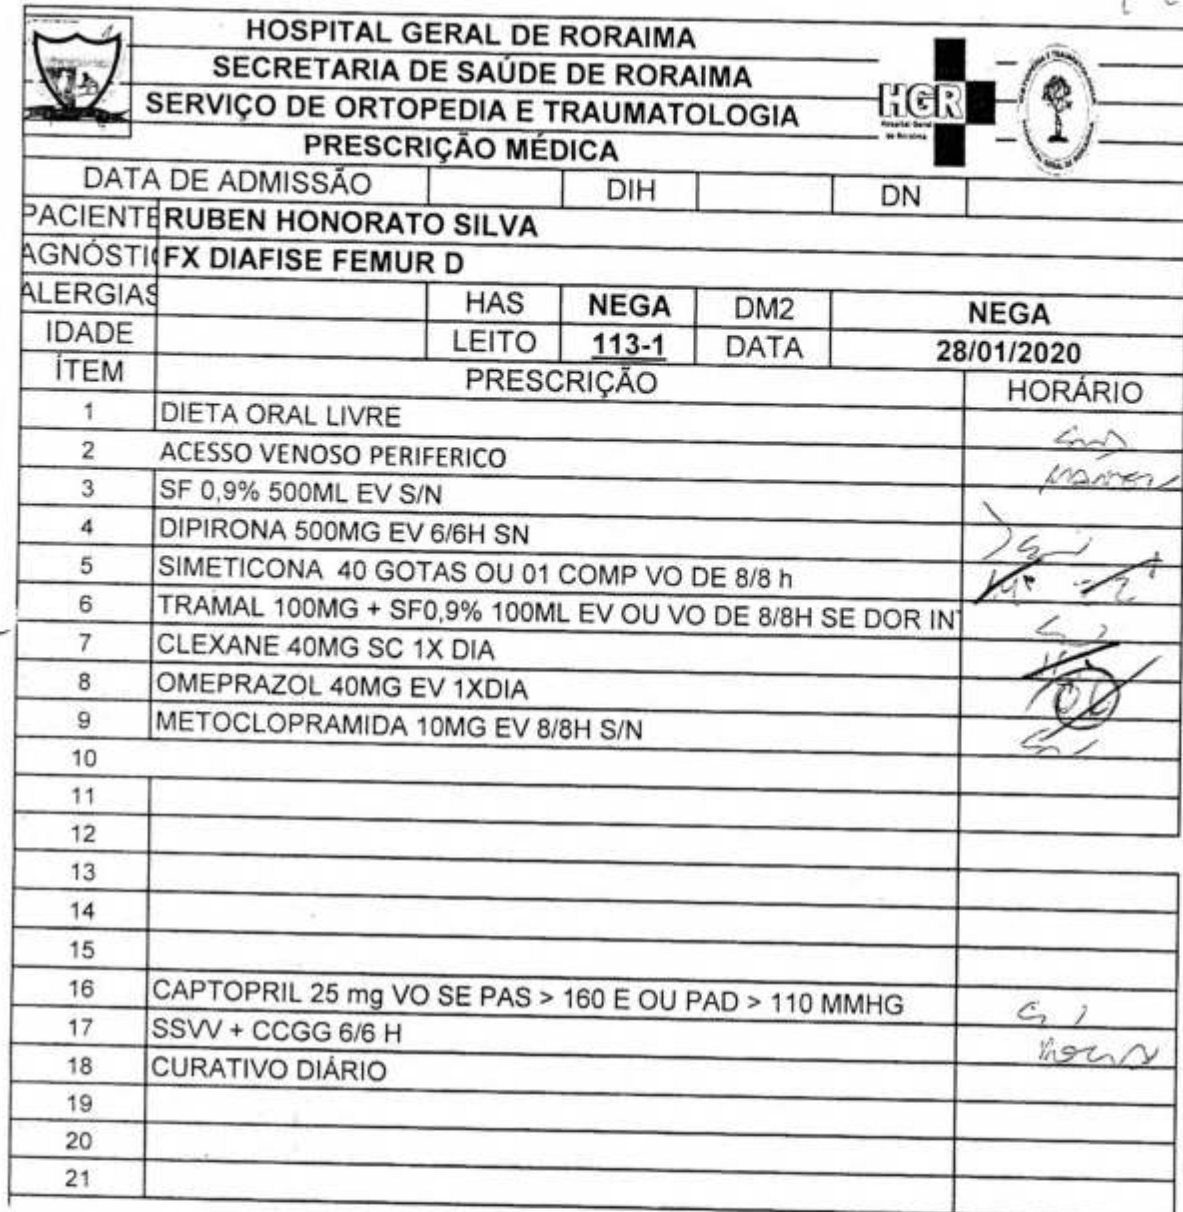 HOSPITAL GERAL DE RORAIMA
SECRETARIA DE SAÚDE DE RORAIMA
SERVIÇO DE ORTOPEDIA E TRAUMATOLOGIA
PRESCRIÇÃO MÉDICA
HGR
Hospital Geral
de Roraima
DATA DE ADMISSÃO DIH DN
PACIENTE RUBEN HONORATO SILVA
AGNÓSTI FX DIAFISE FEMUR D
ALERGIAS HAS NEGA DM2 NEGA
IDADE LEITO 113-1 DATA 28/01/2020
ÍTEM PRESCRIÇÃO HORÁRIO
1 DIETA ORAL LIVRE
2 ACESSO VENOSO PERIFERICO
3 SF 0,9% 500ML EV S/N
4 DIPIRONA 500MG EV 6/6H SN
5 SIMETICONA 40 GOTAS OU 01 COMP VO DE 8/8 h
6 TRAMAL 100MG + SF0,9% 100ML EV OU VO DE 8/8H SE DOR IN
7 CLEXANE 40MG SC 1X DIA
8 OMEPRAZOL 40MG EV 1XDIA
9 METOCLOPRAMIDA 10MG EV 8/8H S/N
10
11
12
13
14
15
16 CAPTOPRIL 25 mg VO SE PAS > 160 E OU PAD > 110 MMHG
17 SSVV + CCGG 6/6 H
18 CURATIVO DIÁRIO
19
20
21